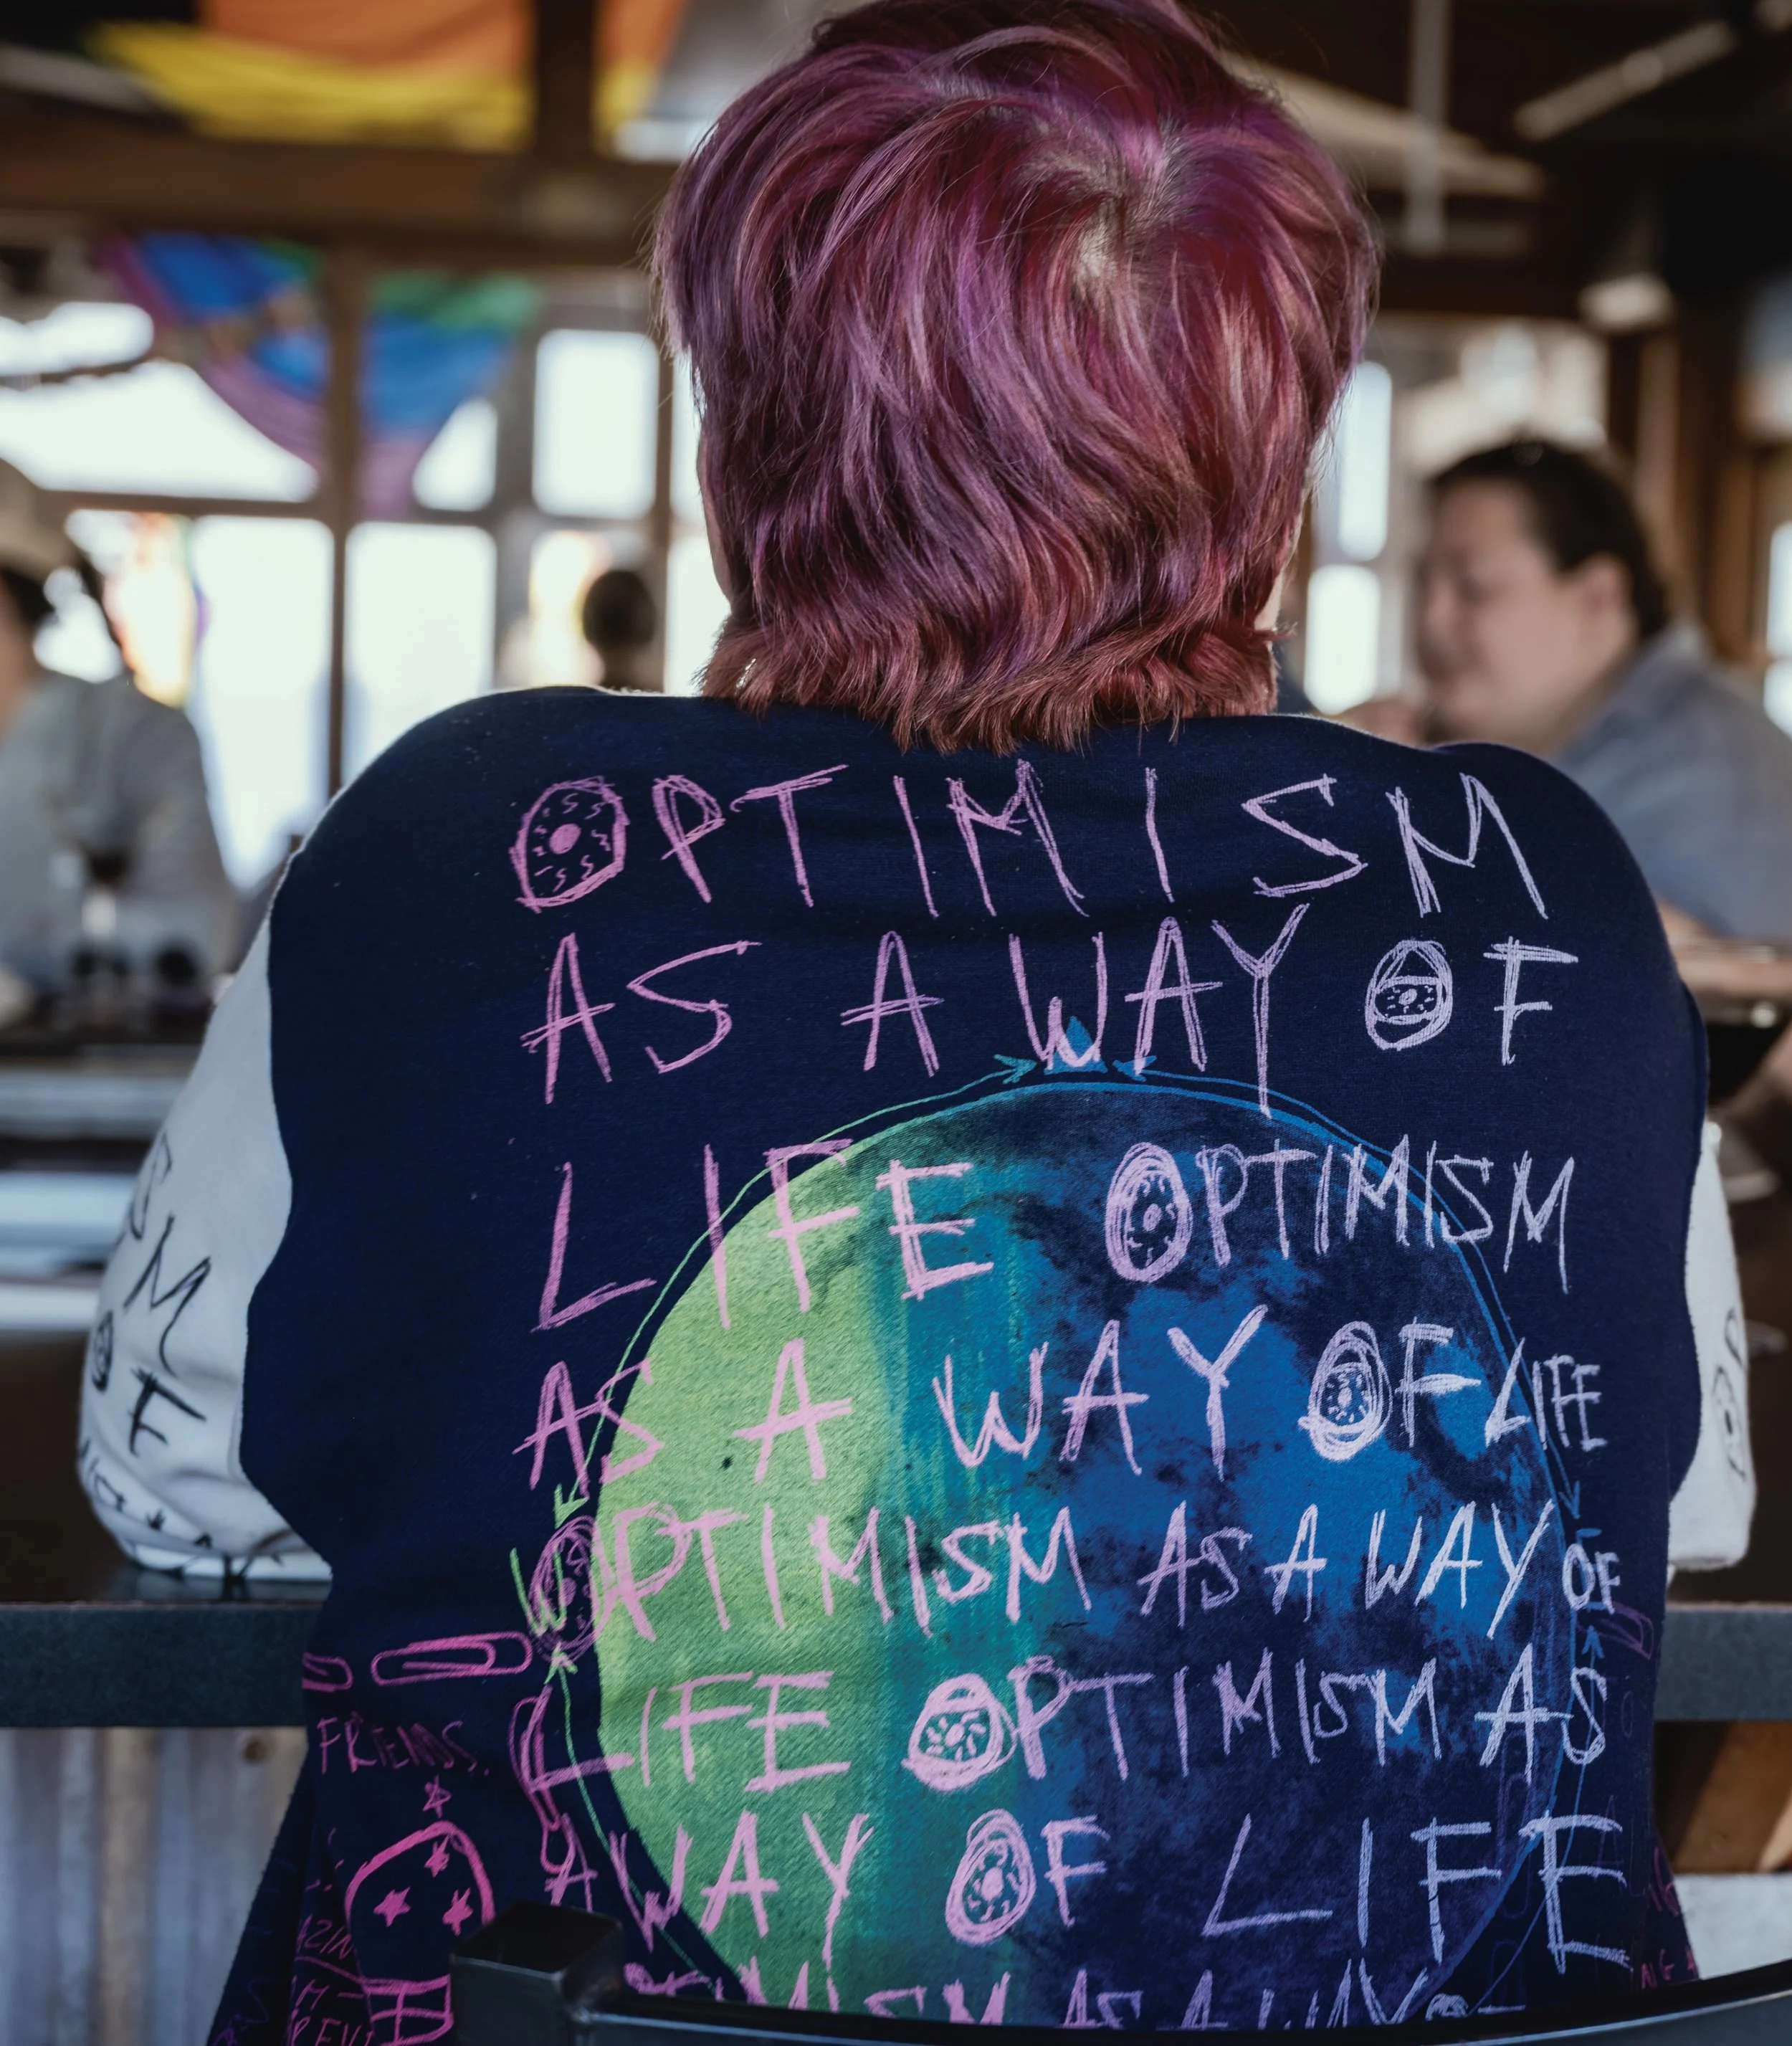 OPTIMISM
AS A WAY OF
LIFE OPTIMISM
AS A WAY OF LIFE
OPTIMISM AS A WAY OF
LIFE OPTIMISM AS
A WAY OF LIFE
OPTIMISM AS A WAY OF
FRIENDS.
SM
OF
W